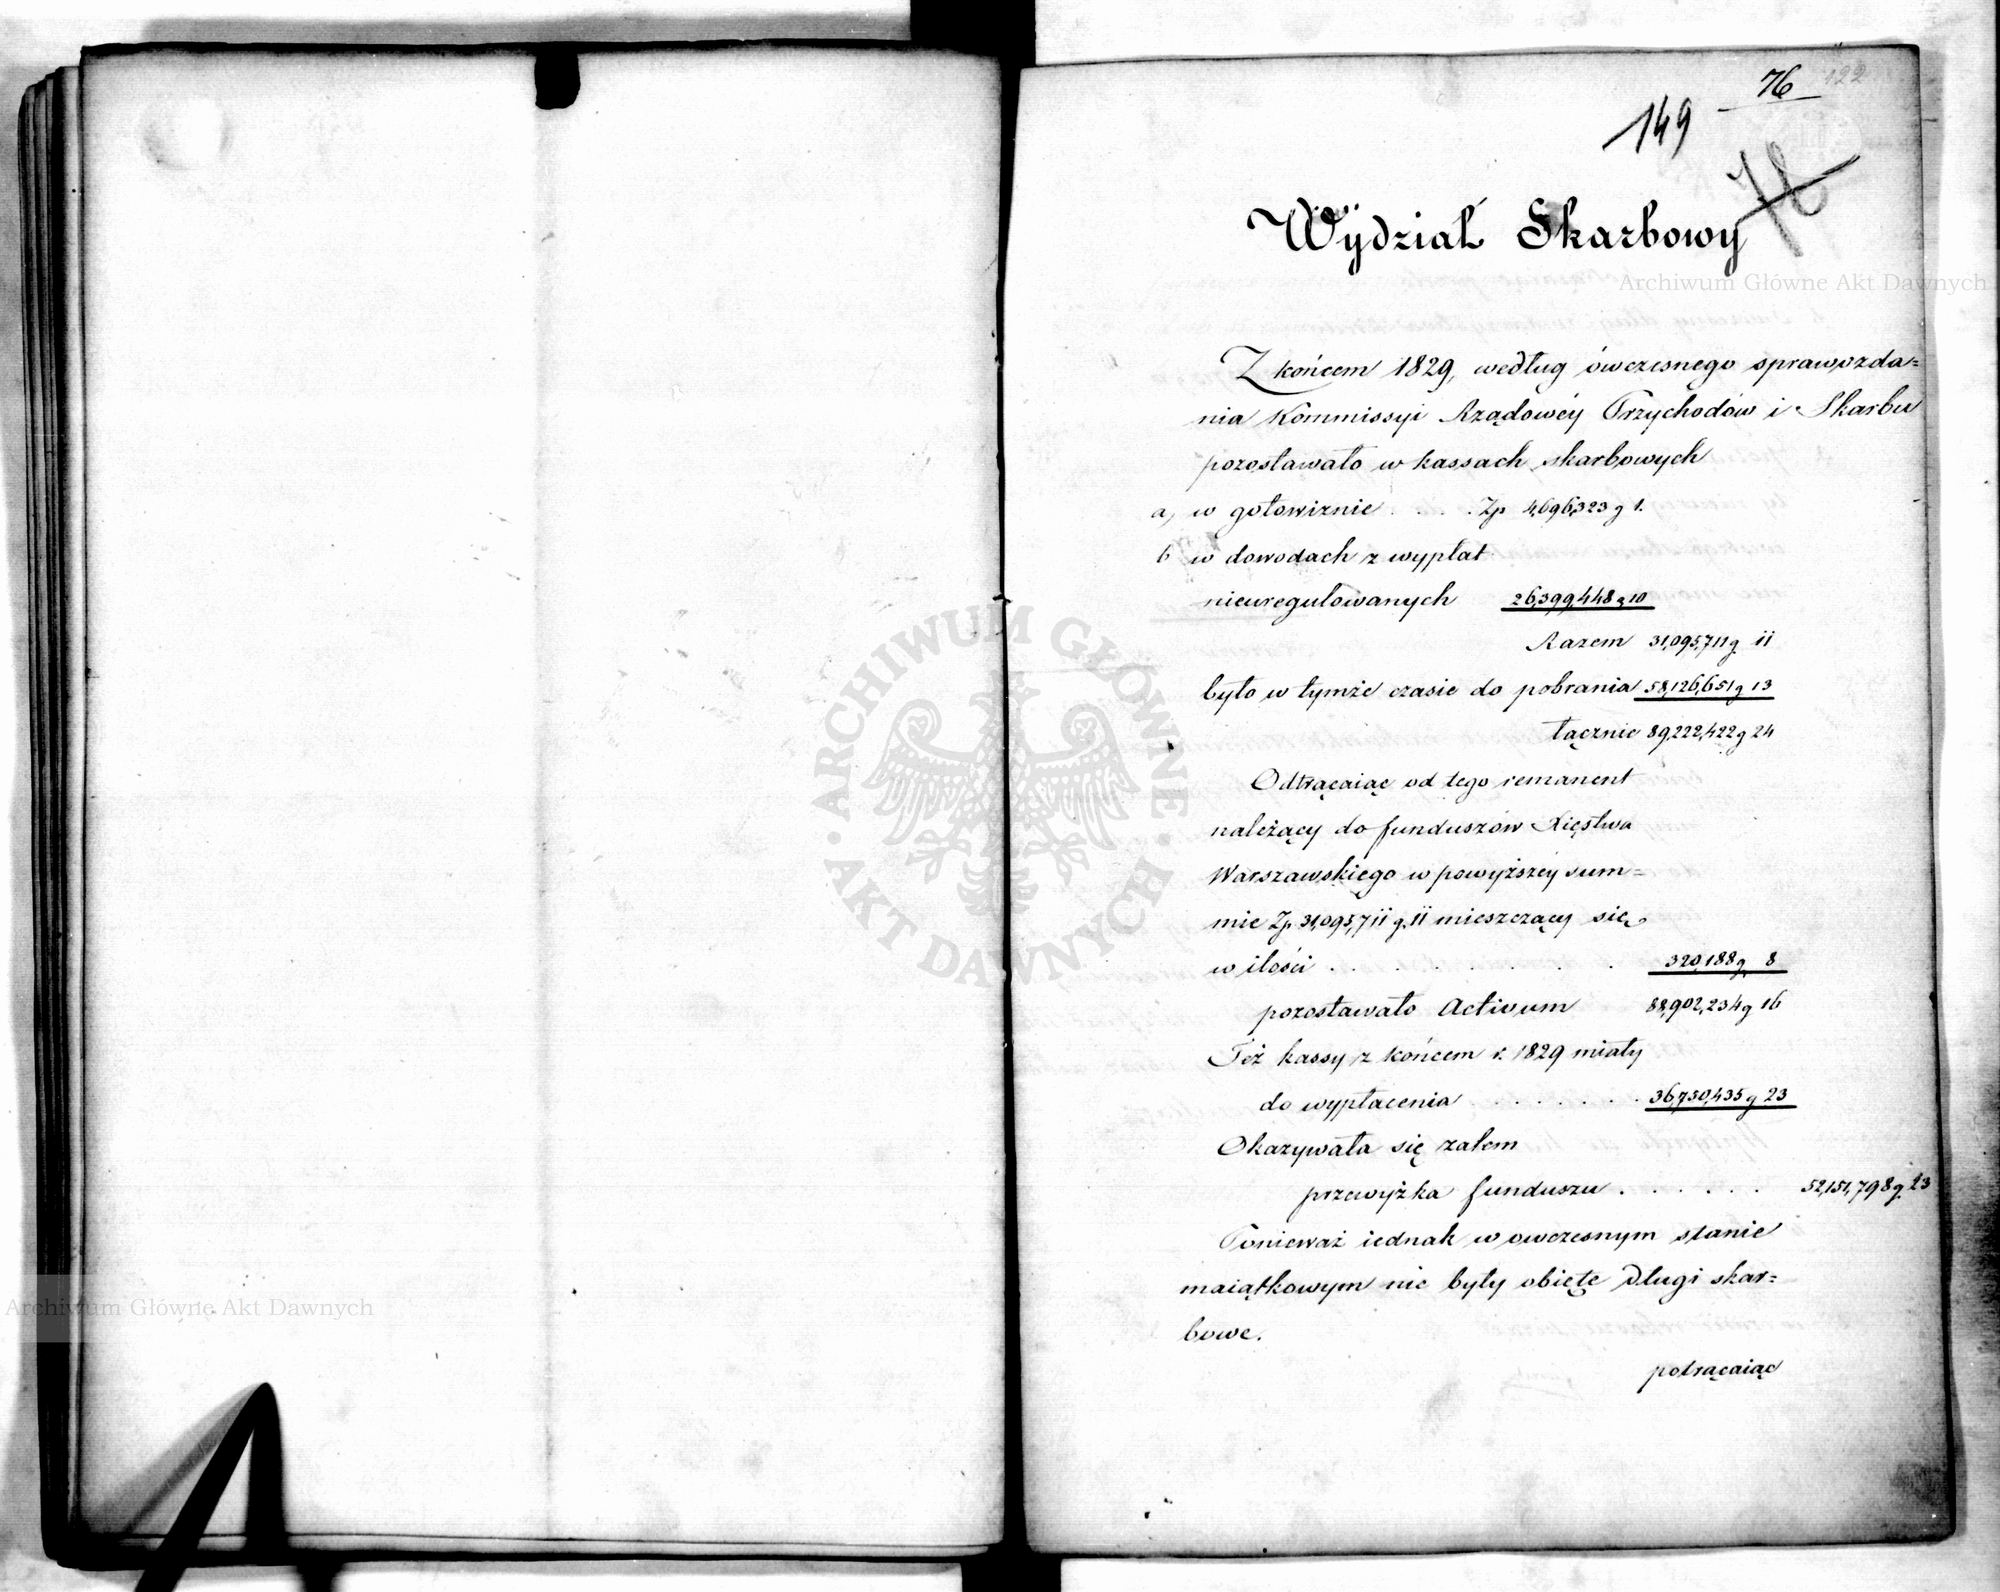 76 122
149
78
Wydział Skarbowy
Archiwum Główne Akt Dawnych
Z końcem 1829, według ówczesnego sprawozda=
nia Kommissyi Rządowéy Przychodów i Skarbu
pozostawało w kassach skarbowych
a, w gotowiznie . . . . Zp 4,696,323 g 1.
b w dowodach z wypłat
nieuregulowanych 26,399,448 g 10
Razem 31,095,711 g 11
było w tymże czasie do pobrania 58,126,651 g 13
łącznie 89,222,422 g 24
Odtrącaiąc od tego remanent
należący do funduszów Xięstwa
Warszawskiego w powyższéy sum=
mie Zp. 31,095,711 g. 11 mieszczący się
w ilości . . . . . . . 320,188 g. 8
pozostawało Activum 88,902,234 g 16
Też kassy z końcem r. 1829 miały
do wypłacenia . . . . . . 36,750,435 g 23
Okazywała się zatem
przewyżka funduszu . . . . . . 52,151,798 g. 23
Ponieważ iednak w owczesnym stanie
maiątkowym nie były obięte Długi skar=
bowe.
potrącaiąc
ARCHIWUM GŁÓWNE AKT DAWNYCH
Archiwum Główne Akt Dawnych